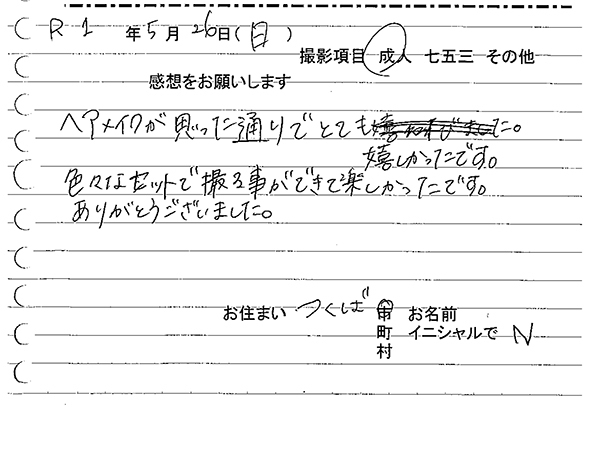 R1年5月26日(日)
撮影項目 成人 七五三 その他
感想をお願いします
ヘアメイクが思った通りでとても
嬉しかったです。
色々なセットで撮る事ができて楽しかったです。
ありがとうございました。
お住まい つくば 市 お名前
町 イニシャルで N
村